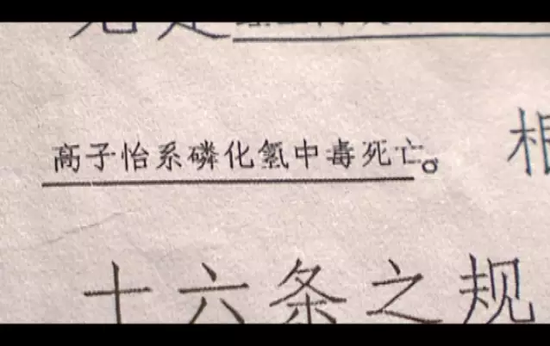 高子怡系磷化氢中毒死亡。 根
十六条之规